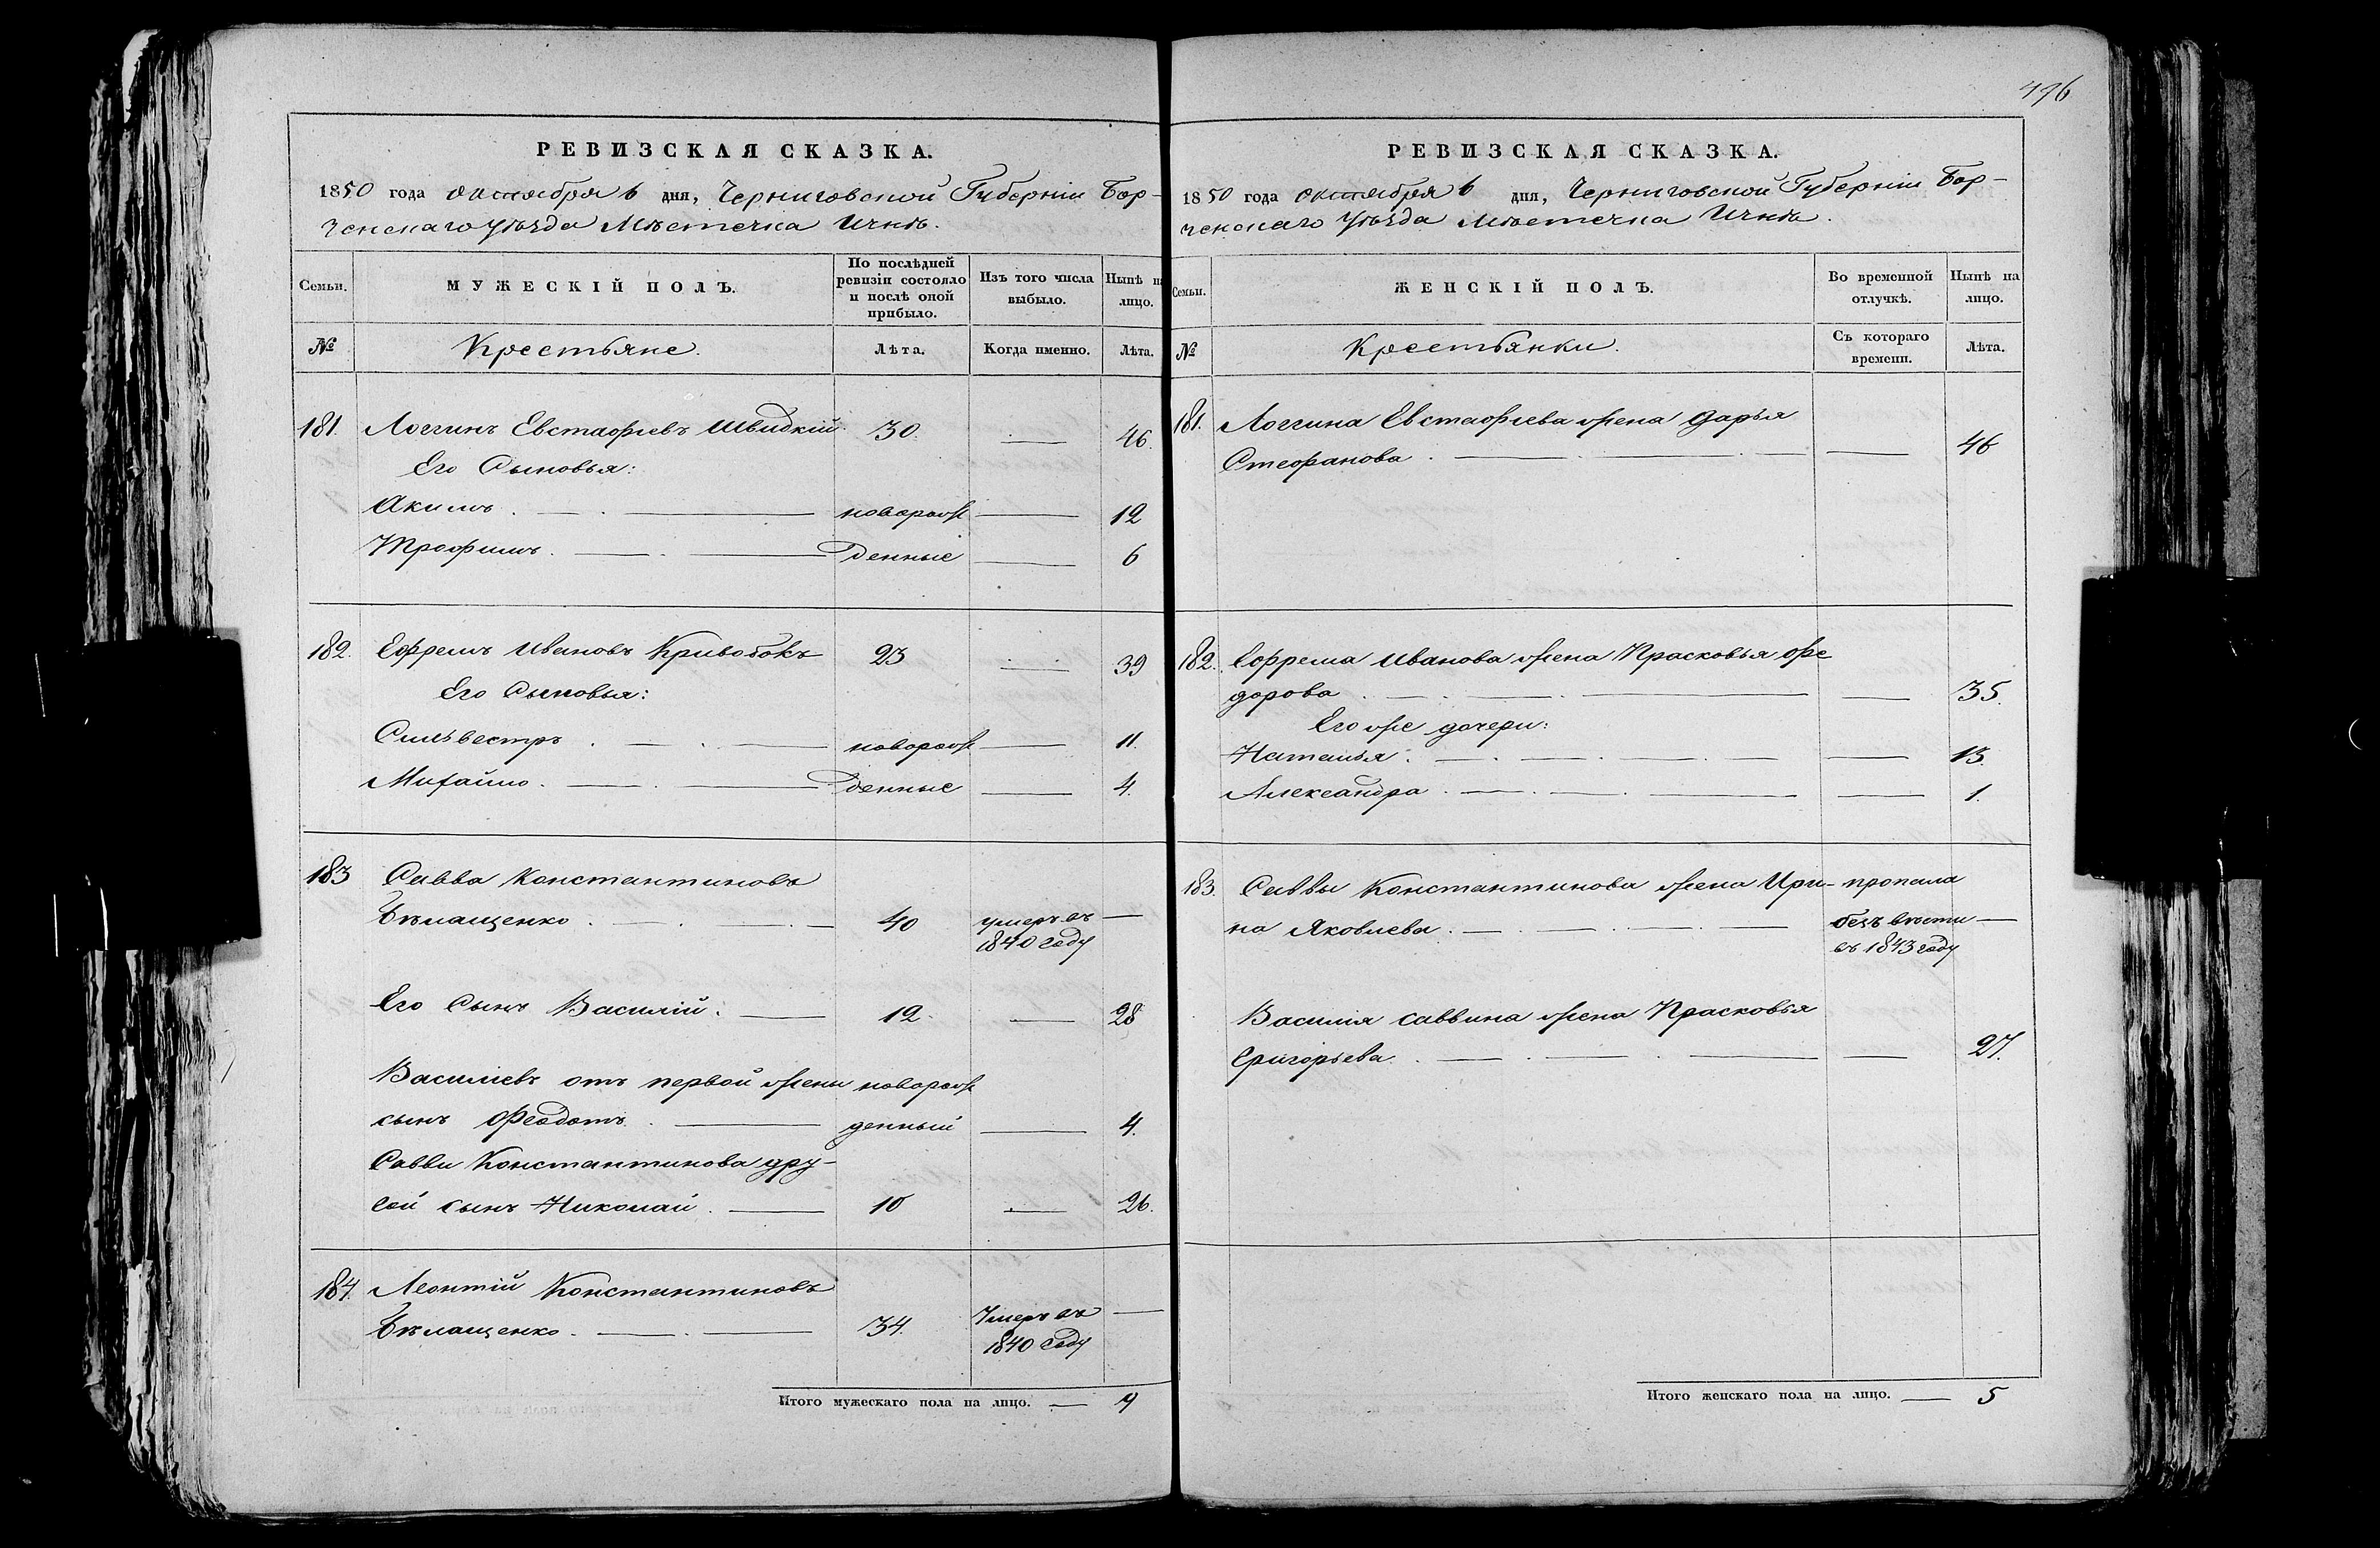 496
РЕВИЗСКАЯ СКАЗКА.
1850 года октября 6 дня, Черниговской Губерніи Бор-
зенскаго Уѣзда Мѣстечка Ични.
Семьи.
МУЖЕСКІЙ ПОЛЪ.
По послѣдней
ревизіи состояло
и послѣ оной
прибыло.
Изъ того числа
выбыло.
Нынѣ на
лицо.
№
Крестьяне.
Лѣта.
Когда именно.
Лѣта.
181. Логгинъ Евстафіевъ Швидкій 30. — 46.
Его Сыновья:
Акимъ. — новорож — 12
Трофимъ. — денные — 6
182. Ефремъ Ивановъ Кривобокъ 23 — 39
Его Сыновья:
Сильвестръ. — новорож — 11.
Михайло. — денные — 4.
183 Савва Константиновъ
Бѣлащенко. — 40 умеръ въ —
1840 году
Его Сынъ Василій. — 12. — 28
Василіевъ отъ первой жены новорож
сынъ Феодотъ. — денный — 4.
Савви Константинова дру-
гой сынъ Николай. — 10 — 26.
184. Леонтій Константиновъ
Бѣлащенко. — 34. Умеръ въ —
1840 году
Итого мужескаго пола на лицо. — 9
РЕВИЗСКАЯ СКАЗКА.
1850 года октября 6 дня, Черниговской Губерніи Бор-
зенскаго Уѣзда Мѣстечка Ични.
Семьи.
ЖЕНСКІЙ ПОЛЪ.
Во временной
отлучкѣ.
Нынѣ на
лицо.
№
Крестьянки.
Съ котораго
времени.
Лѣта.
181. Логгина Евстафіева жена Дарья
Стефанова. — 46
182. Ефрема Иванова жена Прасковья Фе
дорова. — 35.
Его же дочери:
Наталья. — 13.
Александра. — 1.
183. Саввы Константинова жена Ири- пропала
на Яковлева. — безъ вѣсти —
въ 1843 году
Василія Саввина жена Прасковья
Григорьева. — 27.
Итого женскаго пола на лицо. — 5